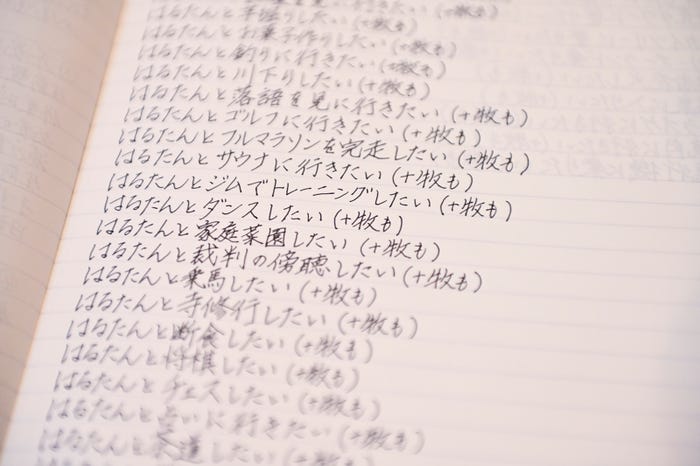 を見に行きたい(+牧も)
はるたんと芋掘りしたい(+牧も)
はるたんとお菓子作りしたい(+牧も)
はるたんと釣りに行きたい(+牧も)
はるたんと川下りしたい(+牧も)
はるたんと落語を見に行きたい(+牧も)
はるたんとゴルフに行きたい(+牧も)
はるたんとフルマラソンを完走したい(+牧も)
はるたんとサウナに行きたい(+牧も)
はるたんとジムでトレーニングしたい(+牧も)
はるたんとダンスしたい(+牧も)
はるたんと家庭菜園したい(+牧も)
はるたんと裁判の傍聴したい(+牧も)
はるたんと乗馬したい(+牧も)
はるたんと寺修行したい(+牧も)
はるたんと断食したい(+牧も)
はるたんと将棋したい(+牧も)
はるたんとチェスしたい(+牧も)
はるたんと占いに行きたい(+牧も)
はるたんと茶道したい(+牧も)